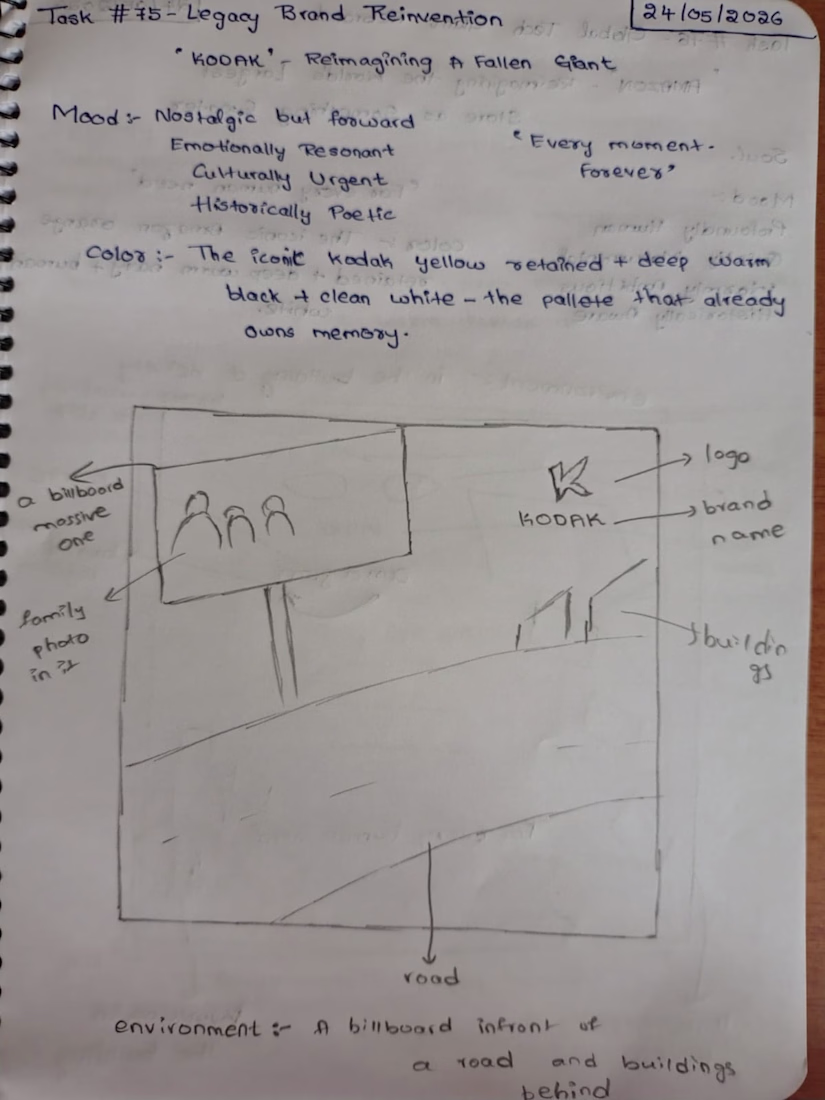 Task #75 - Legacy Brand Reinvention
24/05/2026
"KODAK" - Reimagining A Fallen Giant
Mood :- Nostalgic but forward
Emotionally Resonant
Culturally Urgent
Historically Poetic
"Every moment.
Forever"
Color :- The iconic Kodak yellow retained + deep warm
black + clean white - the pallete that already
owns memory.
a billboard
massive
one
family
photo
in it
K
KODAK
logo
brand
name
buildin
gs
road
environment :- A billboard infront of
a road and buildings
behind